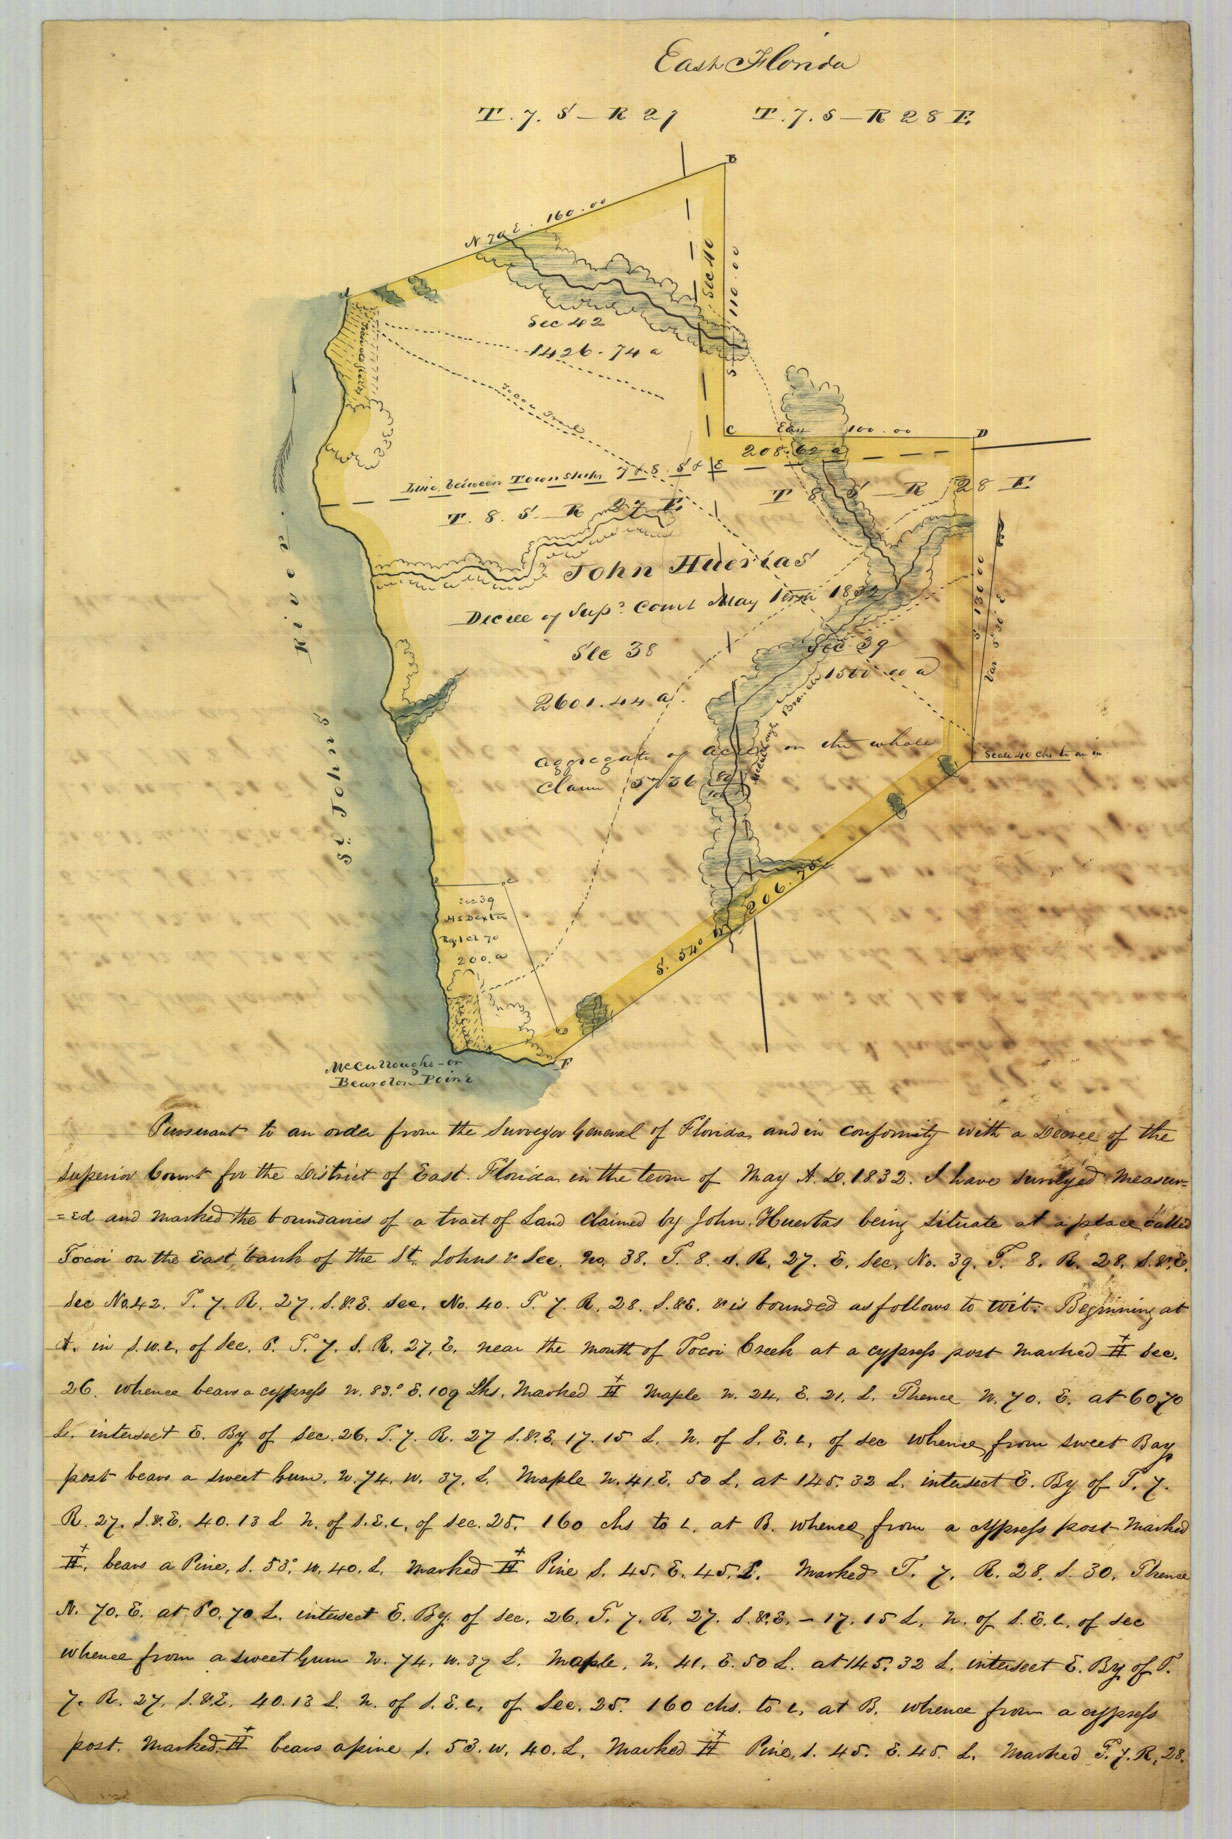 East Florida
T. 7. S — R 27
T. 7. S — R 28 E.
B
N 70 E. 160.00
A
Sec 40
S 110.00
Sec 42
1426.74 a
Tocoi Trail
C
East 100.00
D
208.62 a
Line between Townships 7 & 8 S & E
T 8 S — R 28 E
T. 8. S — R 27 E
John Huertas
Decree of Sup.r Court May Term 1832
Sec 38
Sec 39
1500.00 a
2601.44 a
S. 130.00
Var. 5° 30 E
River
St Johns
aggregate of acres in the whole
Claim 5736 80/100
McCullough Branch
Scale 40 Chs to an in
Sec 39
H S Dexter
200. a
S. 54° W 206.70
F
McCulloughs or
Beardon Point
Pursuant to an order from the Surveyor General of Florida and in conformity with a Decree of the
Superior Court for the District of East Florida in the term of May A. D. 1832. I have surveyed measur=
=ed and marked the boundaries of a tract of Land claimed by John Huertas being situate at a place called
Tocoi on the East bank of the St. Johns & Sec. No. 38. T. 8. S. R. 27. E. Sec. No. 39. T. 8. R. 28. S.&E.
Sec No. 42. T. 7. R. 27. S.&E. Sec. No. 40. T. 7. R. 28. S.&E. & is bounded as follows to wit: Beginning at
A. in S.W.C. of Sec. T. 7. S. R. 27. E. near the mouth of Tocoi Creek at a cypress post marked H Sec.
26. whence bears a cypress N. 83.° E. 109 Lks. Marked H Maple N. 24. E. 21. L. Thence N. 70. E. at 60.70
L. intersect E. By of Sec. 26. T. 7. R. 27 S.&E. 17.15 L. N. of S. E. C. of sec whence from Sweet Bay
post bears a sweet Gum. N. 74. W. 37. L. Maple N. 41. E. 50 L. at 145.32 L. intersect E. By of T. 7.
R. 27. S.&E. 40.13 L N. of S.E.C. of Sec. 25. 160 chs to C. at B. whence from a cypress post Marked
H. bears a Pine. S. 53° W. 40. L. Marked H Pine S. 45. E. 45. L. Marked T. 7. R. 28. S. 30. Thence
N. 70. E. at 60.70 L. intersect E. By. of sec. 26. T. 7. R. 27. S.&E. — 17.15 L. N. of S.E.C. of sec
whence from a sweet Gum N. 74. W. 37 L. Maple. N. 41. E. 50 L. at 145.32 L. intersect E. By of T.
7. R. 27. S.&E. 40.13 L N. of S.E.C. of Sec. 25. 160 chs. to C. at B. whence from a cypress
post. Marked H bears a pine S. 53. W. 40. L. Marked H Pine. S. 45. E. 45. L. Marked T. 7. R. 28.